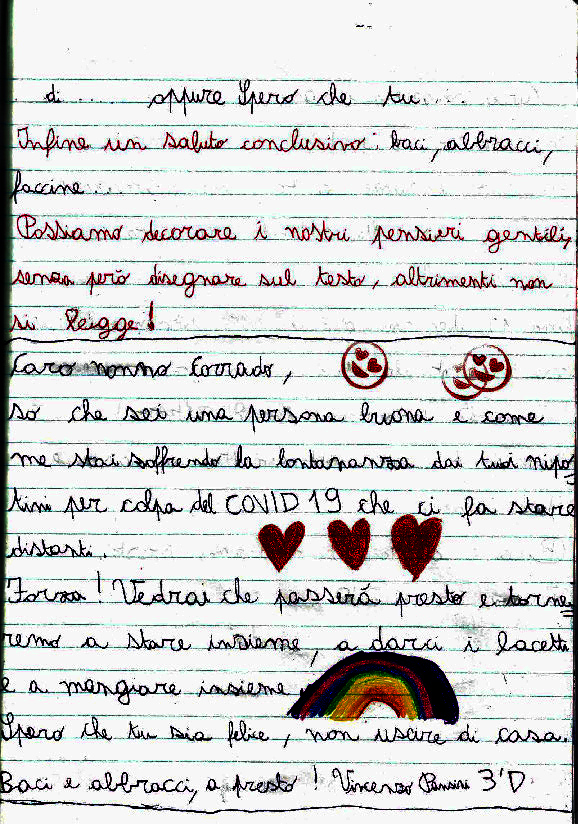 di .... oppure Spero che tu....
Infine un saluto conclusivo: baci, abbracci,
faccine.
Possiamo decorare i nostri pensieri gentili,
senza però disegnare sul testo, altrimenti non
si legge!
Caro nonno Corrado,
so che sei una persona buona e come
me stai soffrendo la lontananza dai tuoi nipo
tini per colpa del COVID 19 che ci fa stare
distanti.
Forza! Vedrai che passerá presto e torne
remo a stare insieme, a darci i bacetti
e a mangiare insieme.
Spero che tu sia felice, non uscire di casa.
Baci e abbracci, a presto! Vincenzo 3ªD